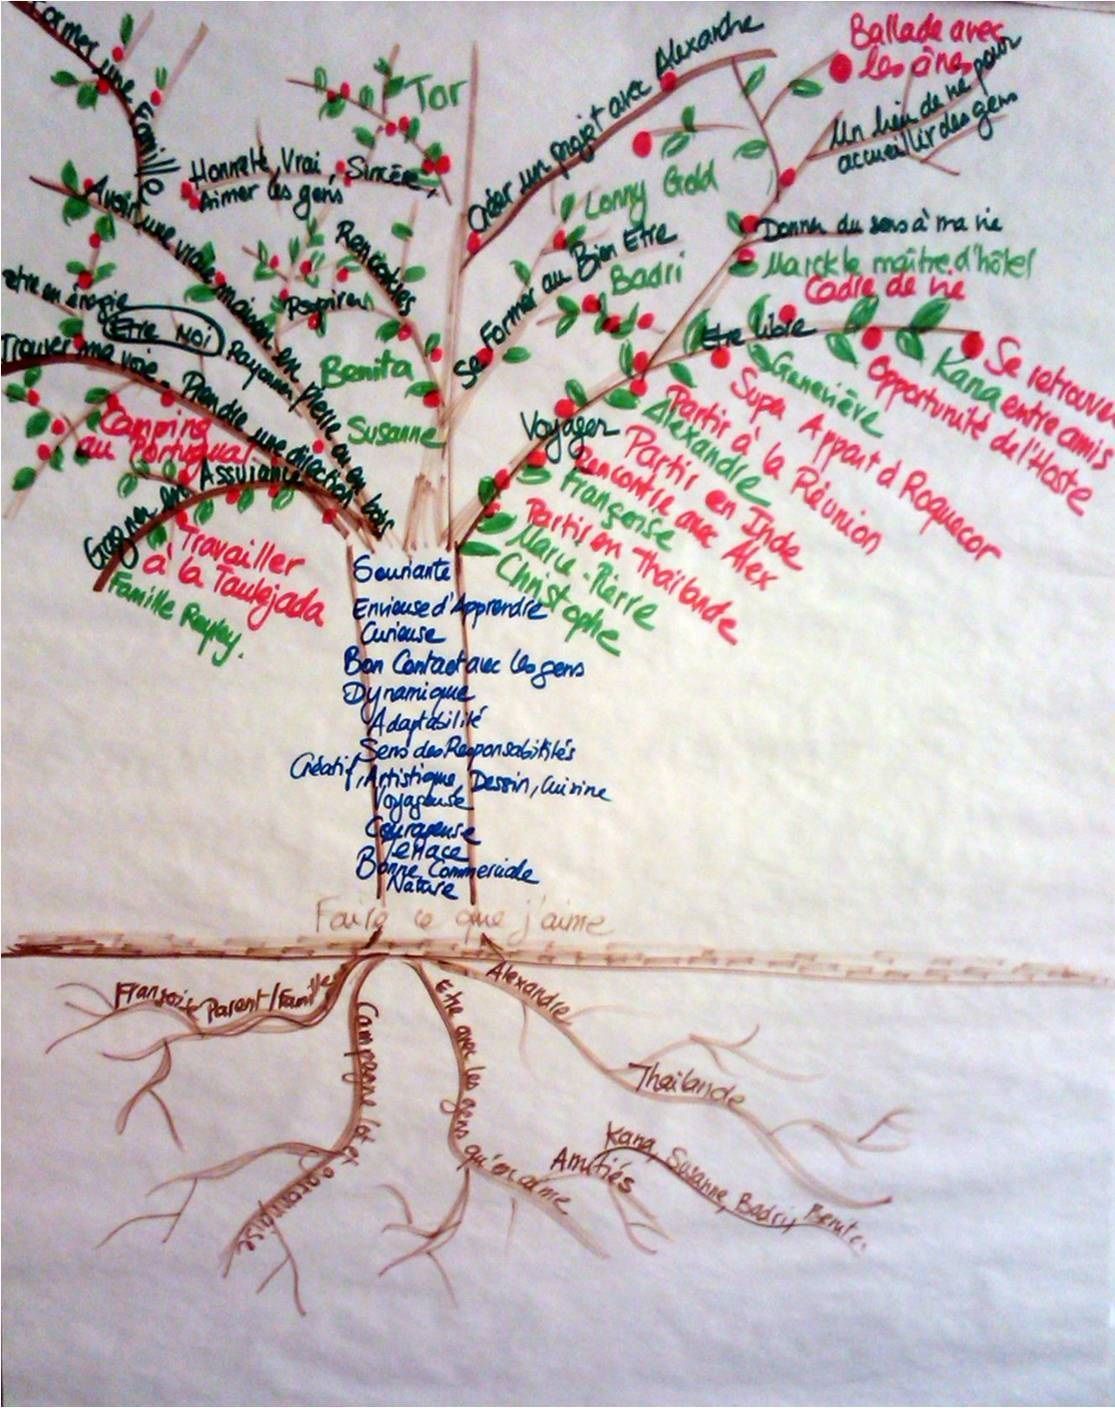 Former une Famille
Tor
Honneté, Vrai, Sincère,
Aimer les gens
Avoir une vraie maison en pierre ou en bois
Rencontres
Respirer
être en énergie
Etre Moi
Rayonner
Trouver ma voie - Prendre une direction
Benita
Susanne
Camping
au Portugual
Gagner en Assurance
Travailler
à la Taulejada
Famille
Créer un projet avec Alexandre
Ballade avec
les ânes
Un lieu de vie pour
accueillir des gens
Lonny Gold
Se Former au Bien Etre
Badri
Donner du sens à ma vie
Marck le maître d'hôtel
Cadre de vie
Etre libre
Se retrouver
entre amis
Kana
Opportunité de l'Hoste
Geneviève
Supa Appart à Roquecor
Partir à la Réunion
Alexandre
Voyager
Partir en Inde
Rencontre avec Alex
Françoise
Partir en Thaïlande
Marie-Pierre
Christophe
Souriante
Envieuse d'Apprendre
Curieuse
Bon Contact avec les gens
Dynamique
Adaptabilité
Sens des Responsabilités
Créatif, Artistique, Dessin, Cuisine
Voyageuse
Courageuse
Tenace
Bonne Commerciale
Nature
Faire ce que j'aime
Parent/Famille
Campagne Lot et garonnaise
Etre avec les gens qu'on aime
Alexandre
Thaïlande
Amitiés
Kana, Susanne, Badri,